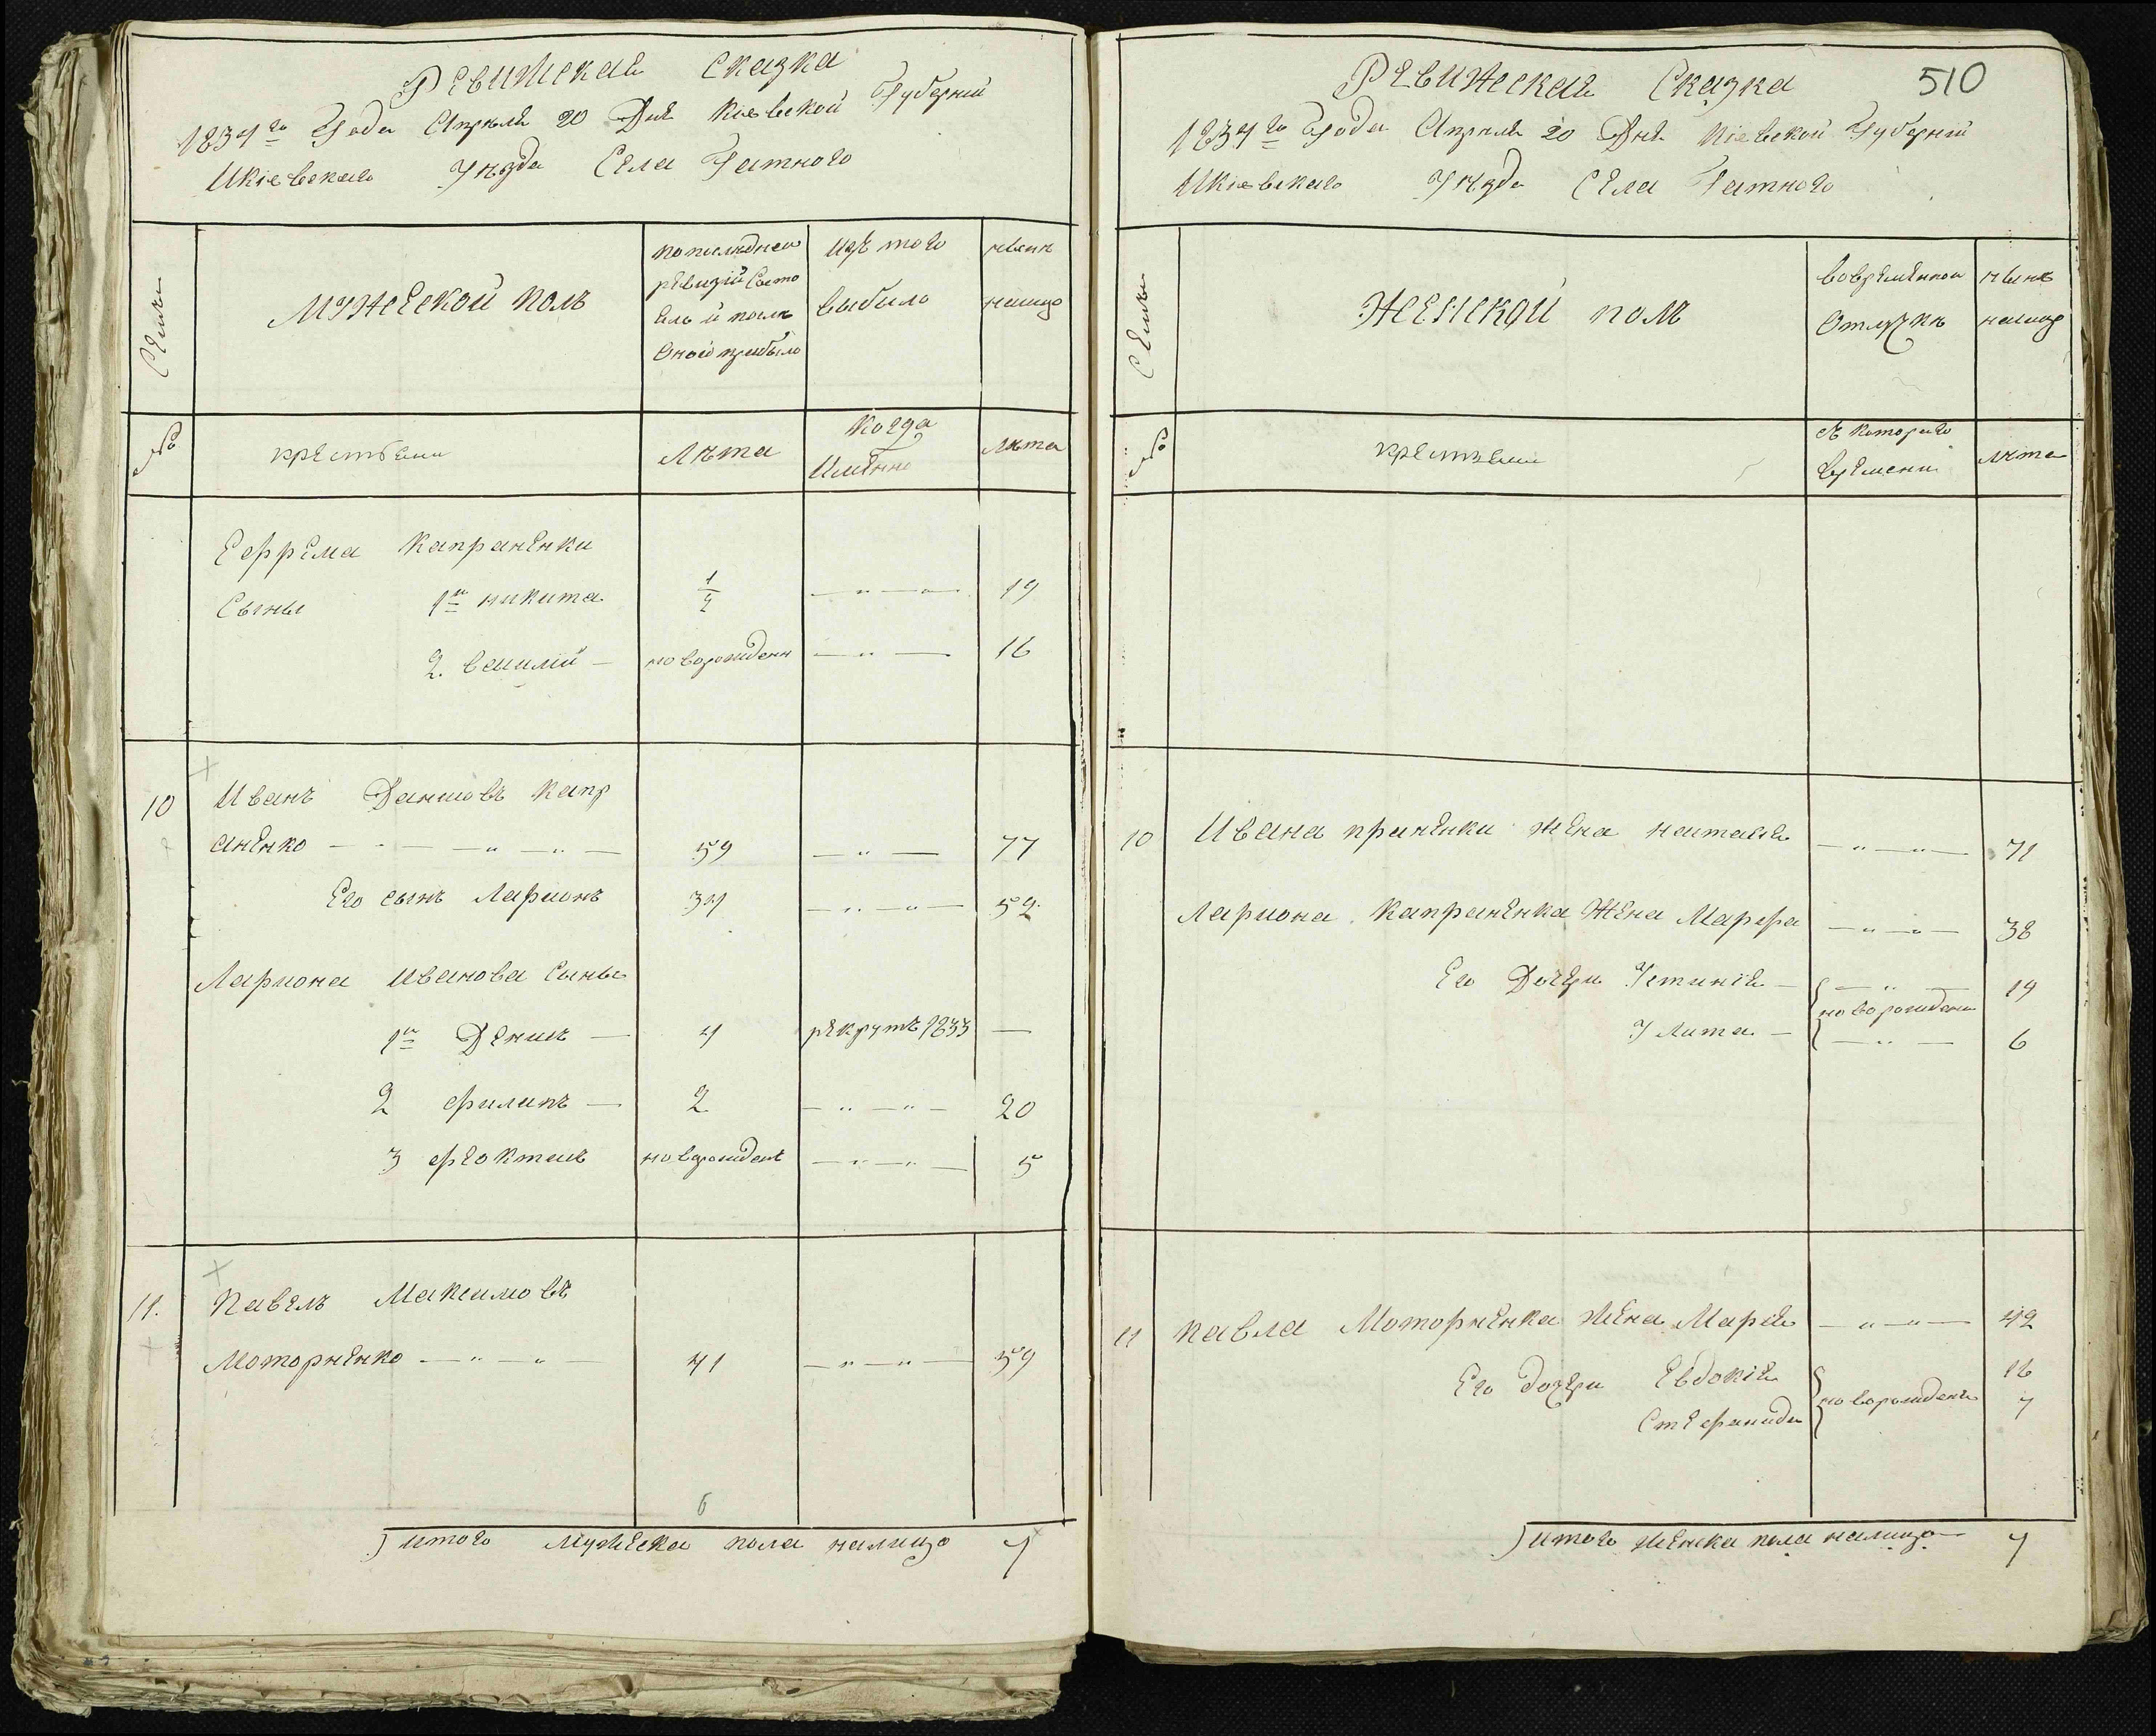 Ревижская Сказка
1834го Года Апреля 20 Дня Киевской Губерний
Икиевскаго Уезда Села Гатного
Семьи
Мужеской полъ
По последнеи
ревизій Состо
Ель й после
Оной прибыло
Изъ того
выбыло
ныне
налицо
№
крестьяни
Лѣта
Когда
Имѣнно
Лѣта
Ефрема Капраненки
Сыны 1й никита 1/2 — „ — „ — 19
2. василий — новорожденн — „ — 16
10 Иванъ Даниловъ Капр
аненко — — — „ — „ — 59 — „ — 77
Его сынъ Ларионъ 34 — „ — „ — 52
Лариона Иванова Сыны
1й Денисъ — 4 рекрутъ 1833 —
2 филипъ — 2 — „ — „ — 20
3 феоктисъ новорожденъ — „ — „ — 5
11. Павелъ Максимовъ
Моторненко — „ — „ — 41 — „ — „ — 59
6
итого мужеска пола налицо 7
510
Ревижская Сказка
1834го Года Апреля 20 Дня Киевской Губерний
Икиевскаго Уезда Села Гатного
Семьи
Женской полъ
Вовременной
Отлучке
ныне
налицо
№
крестьяни
Съ которого
времени
лѣта
10 Ивана праненки жена наталия — „ — „ — 71
Лариона Капраненка Жена Марфа — „ — „ — 38
Его Дочери Устиния — — „ — 19
новорожденн
Улита — — „ — 6
11 Павла Моторненка жена Мария — „ — „ — 42
Его дочери Евдокия 16
новорожденн
Стефанида 7
итого женска пола налицо — 7